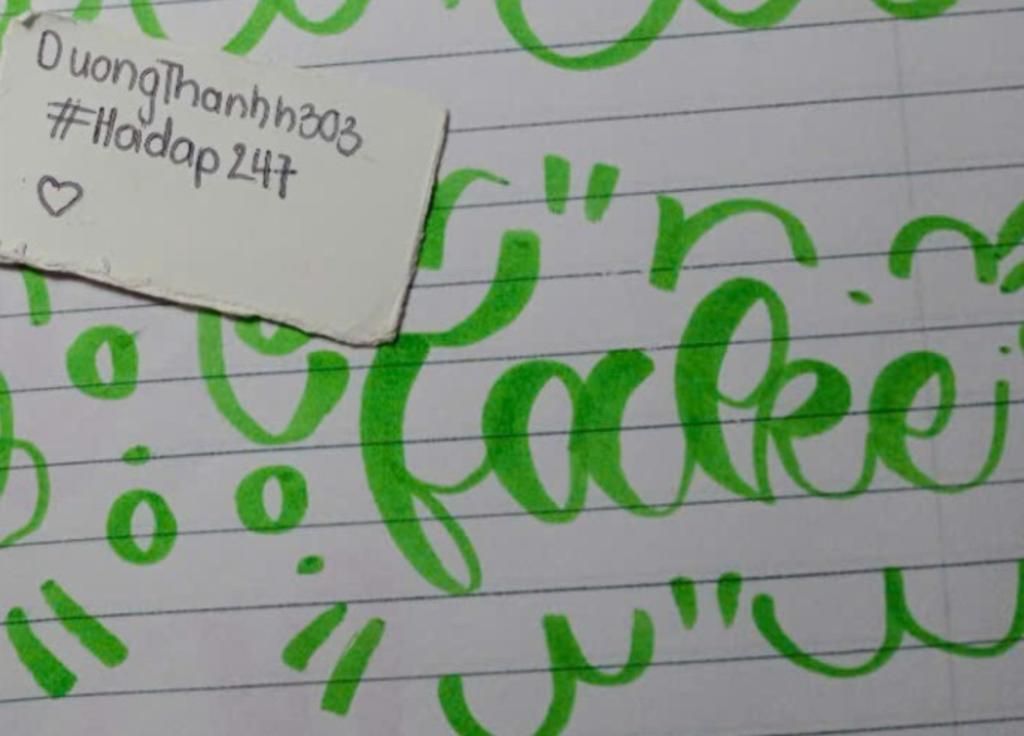 DuongThanhh303
#Hoidap247
fake